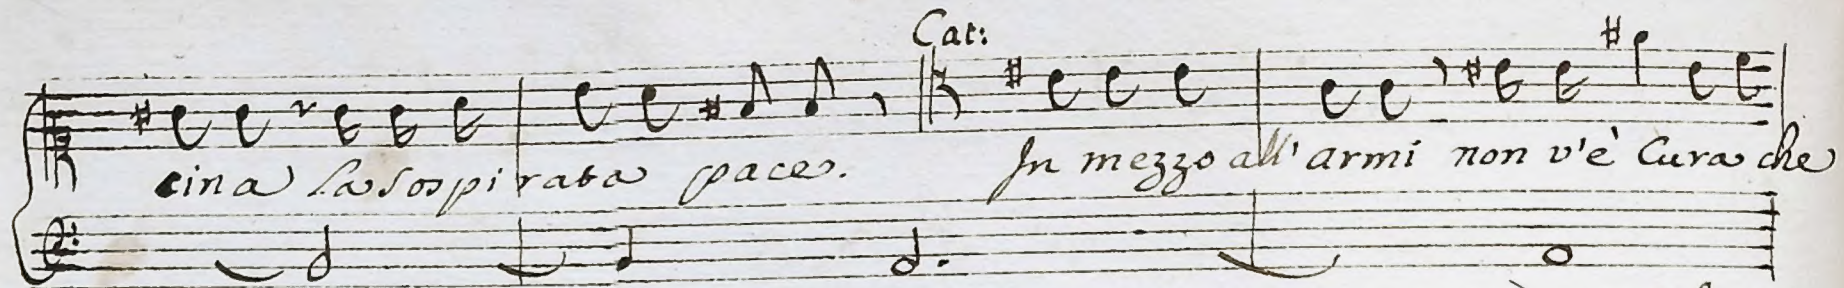 Cat:
cina la sospirata pace. In mezzo all'armi non v'è Cura che